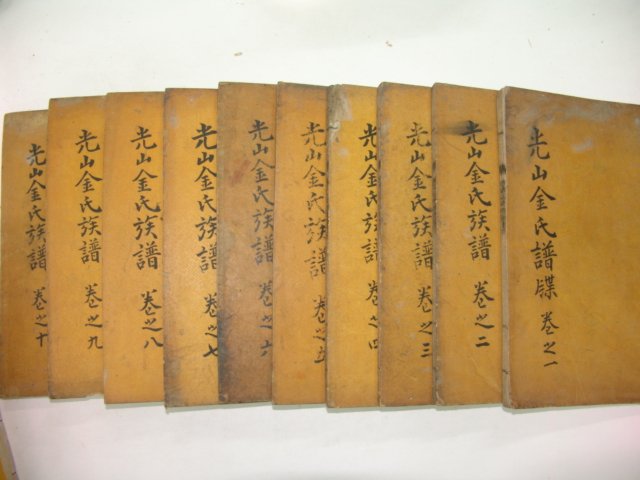 光山金氏譜牒 卷之一
光山金氏族譜 卷之二
光山金氏族譜 卷之三
光山金氏族譜 卷之四
光山金氏族譜 卷之五
光山金氏族譜 卷之六
光山金氏族譜 卷之七
光山金氏族譜 卷之八
光山金氏族譜 卷之九
光山金氏族譜 卷之十